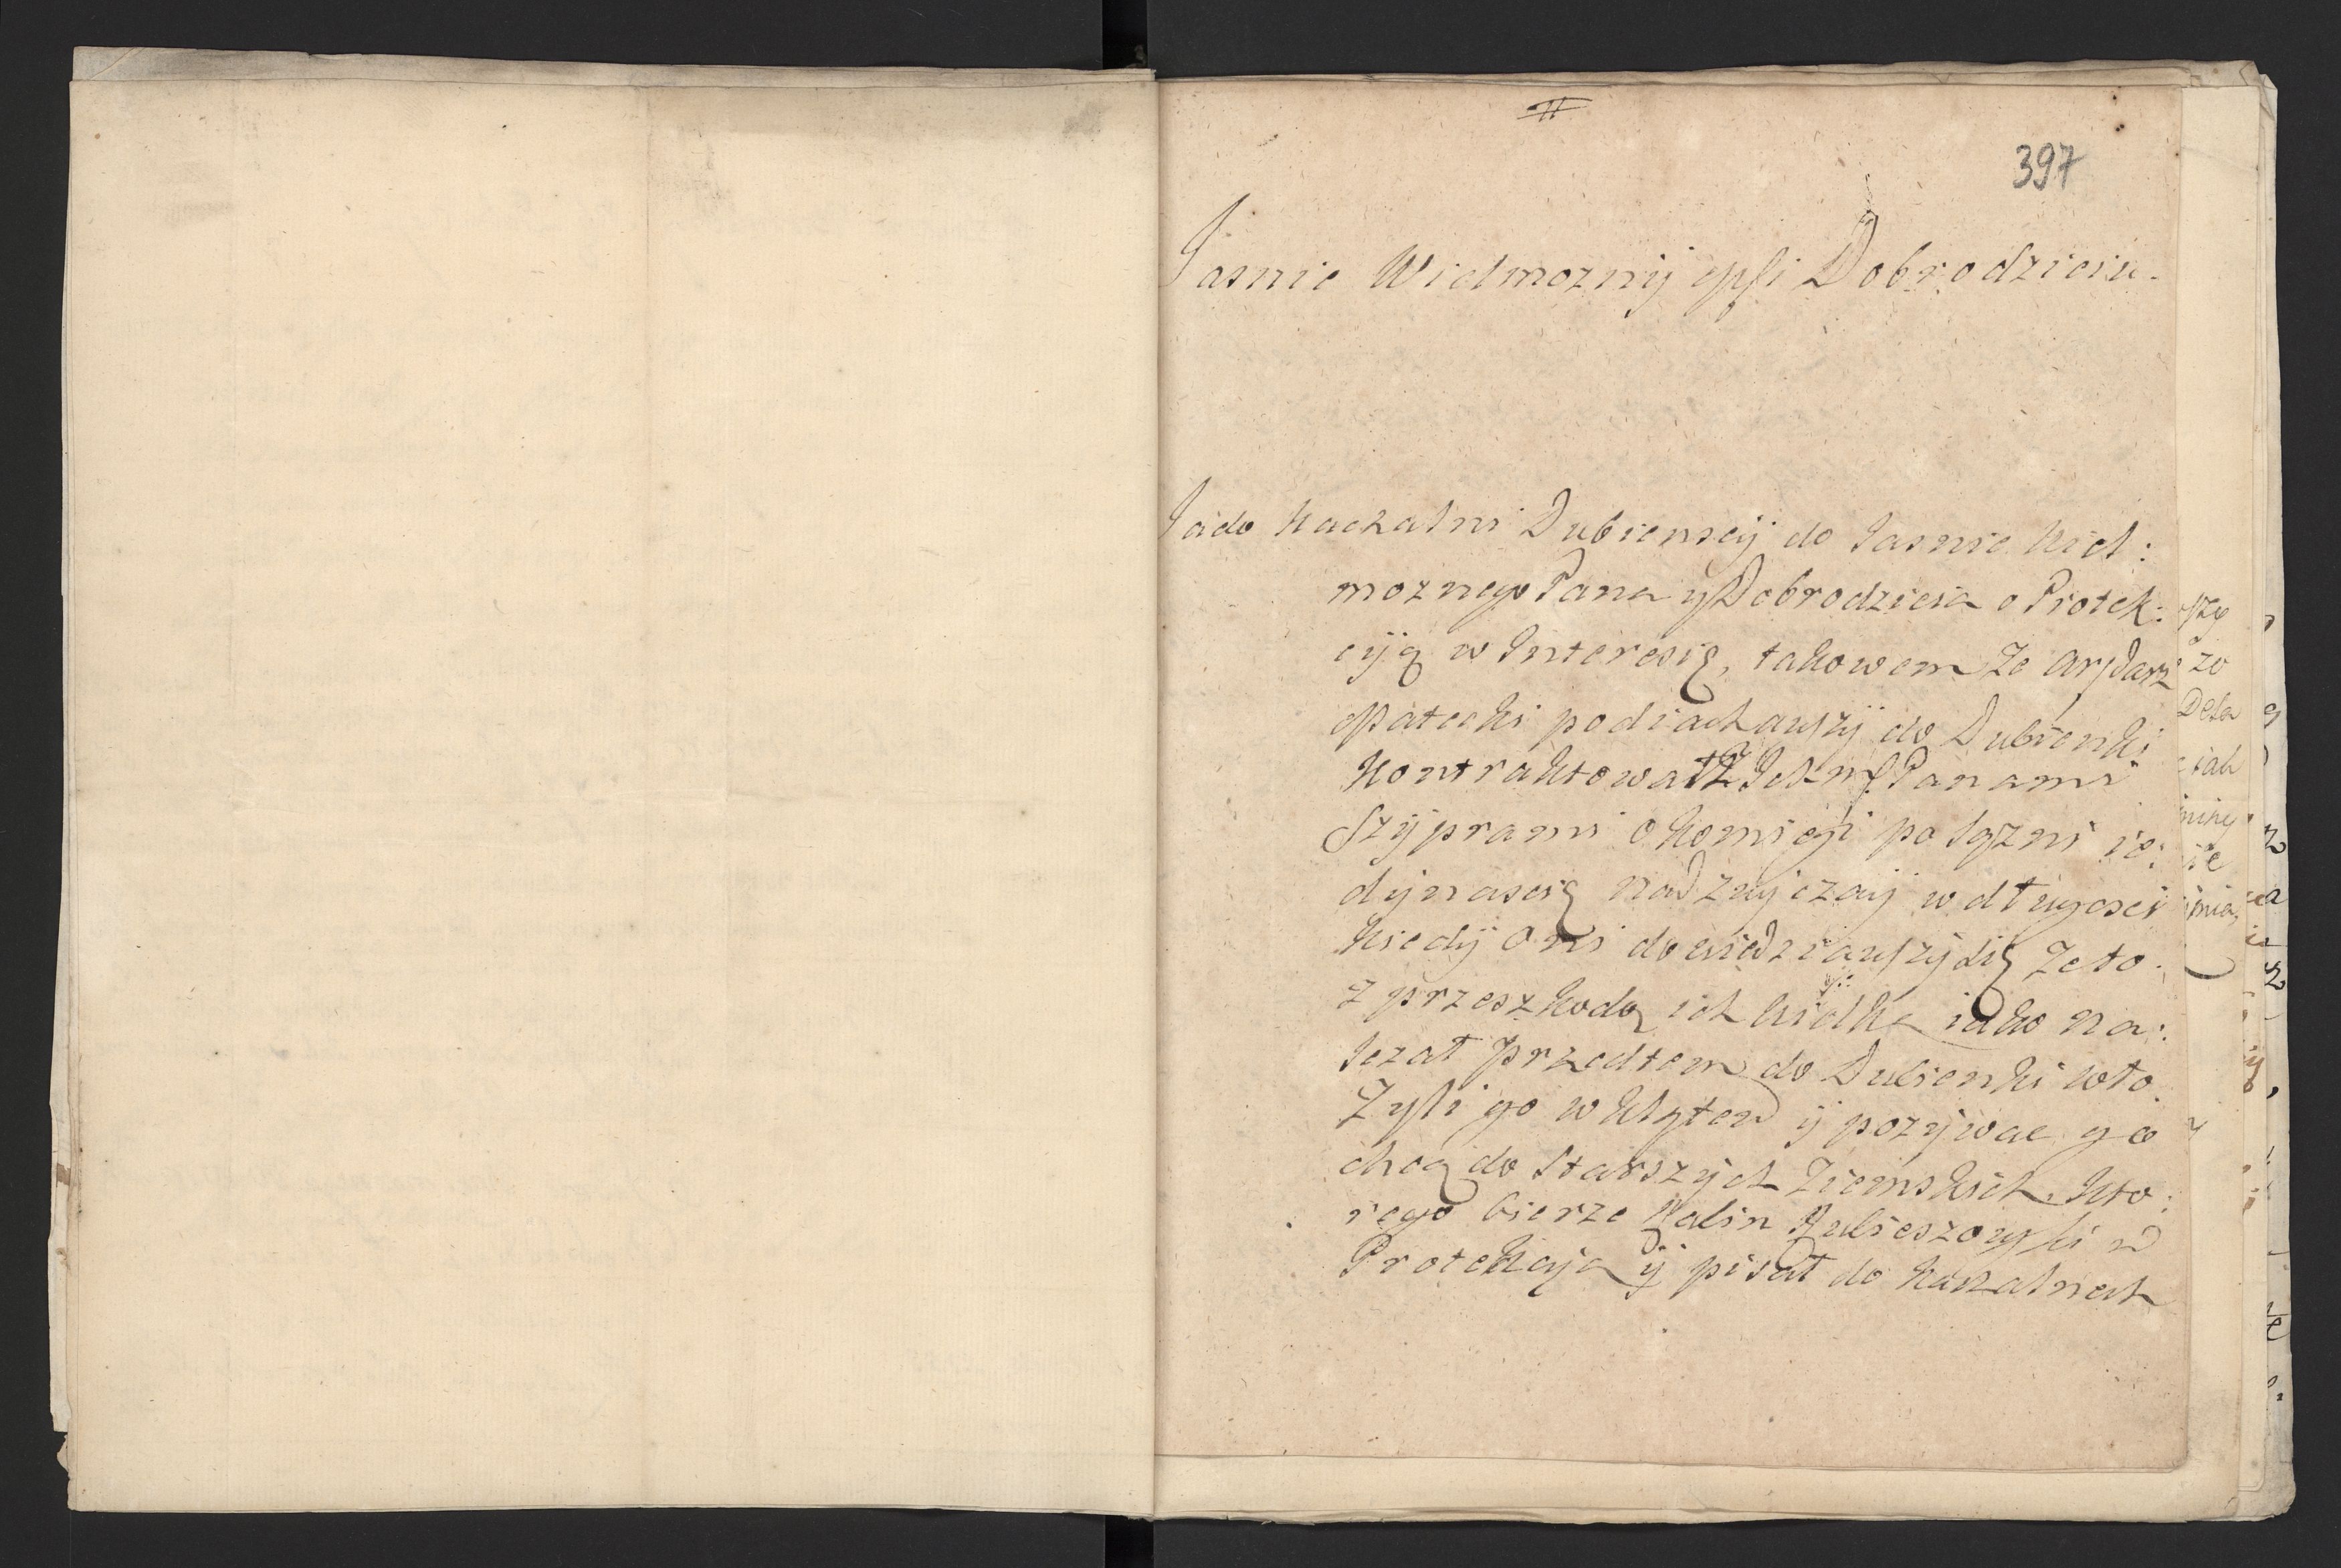 397
Jasnie Wielmoznÿ Dobrodzieiu.
Jado Kachalni Dubienscÿ do Jasnie Wiel:
moznego Pana y Dobrodzieia o Protek:
cÿią w Interesię, takowem Ze
Opatecki podiachawszÿ do Dubienki
Kontraktował Z Ich Panami
Szÿprami o komiegi po sążni ie:
dÿnascię nad zwÿczaÿ w długosci
kiedÿ oni dowiedziawszÿ się Ze to
z przeszkodą ich wielką iako na:
lezał przedtem do Dubienki wło
Zyli go w klątew ÿ pozÿwac go
chcą do Starszÿch Ziemskich. kto:
rego bierze Rabin Hubieszowski w
Protekcÿią ÿ pisał do Kachalnech